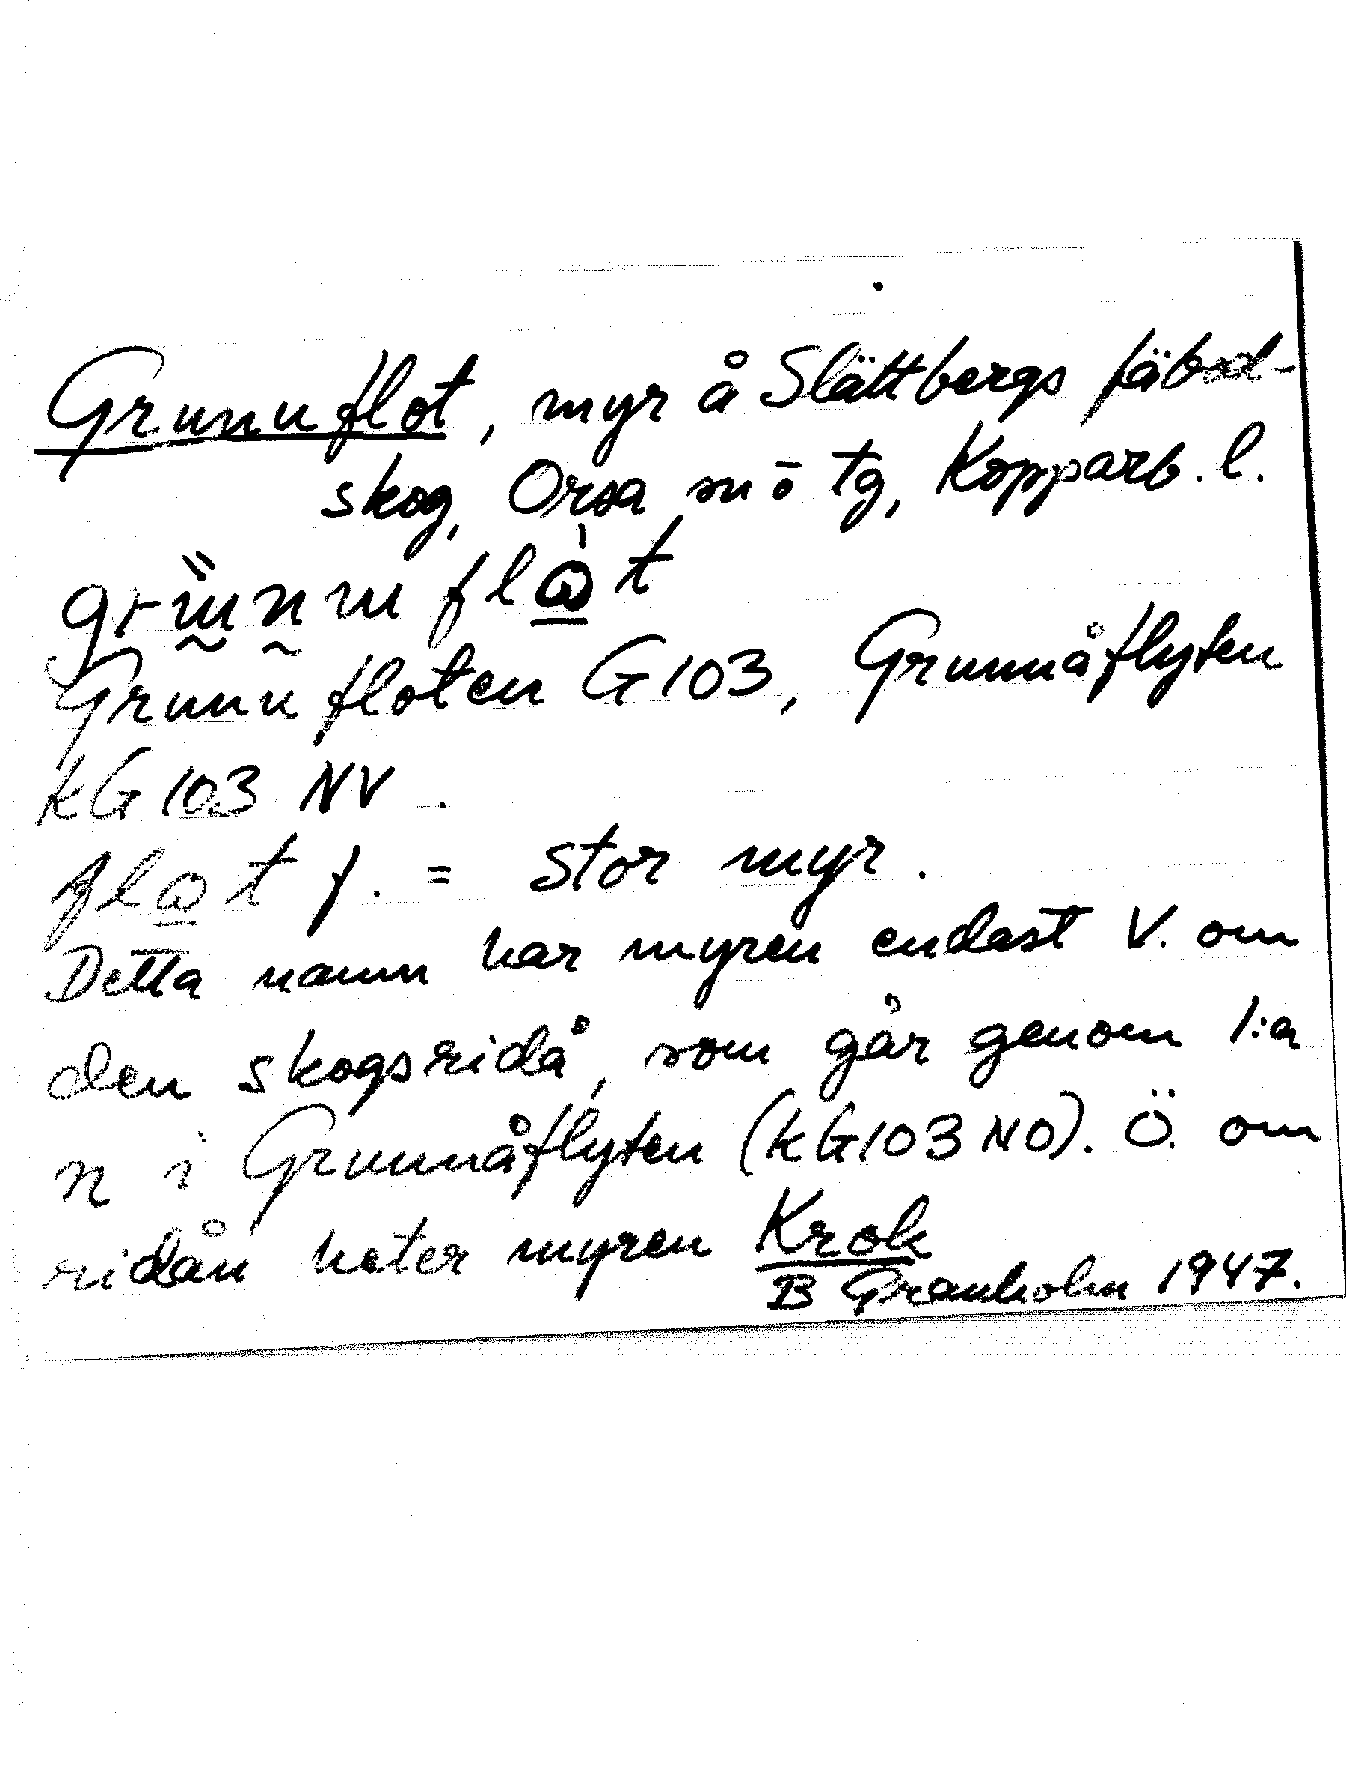 Grunuflot, myr å Slättbergs fäbod-
skog, Orsa sn o tg, Kopparb. l.
Grunufloten G103, Grunnåflyten
kG103 NV.
f. = stor myr.
Detta namn har myren endast V. om
den skogsridå, som går genom 1:a
n i Grunnåflyten (kG103 NO). Ö. om
ridån heter myren Krok
B Granholm 1947.